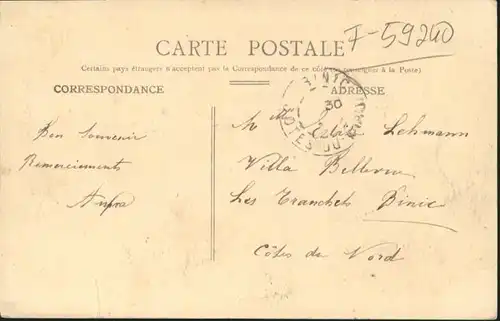 F-59240
CARTE POSTALE
Certains pays étrangers n'acceptent pas la Correspondance de ce côté (se renseigner à la Poste)
CORRESPONDANCE
ADRESSE
BINIC
30
COTES DU NORD
Bon Souvenir
Remerciements
M Lehmann
Villa Bellevue
Les Tranchets Binic
Côtes du Nord